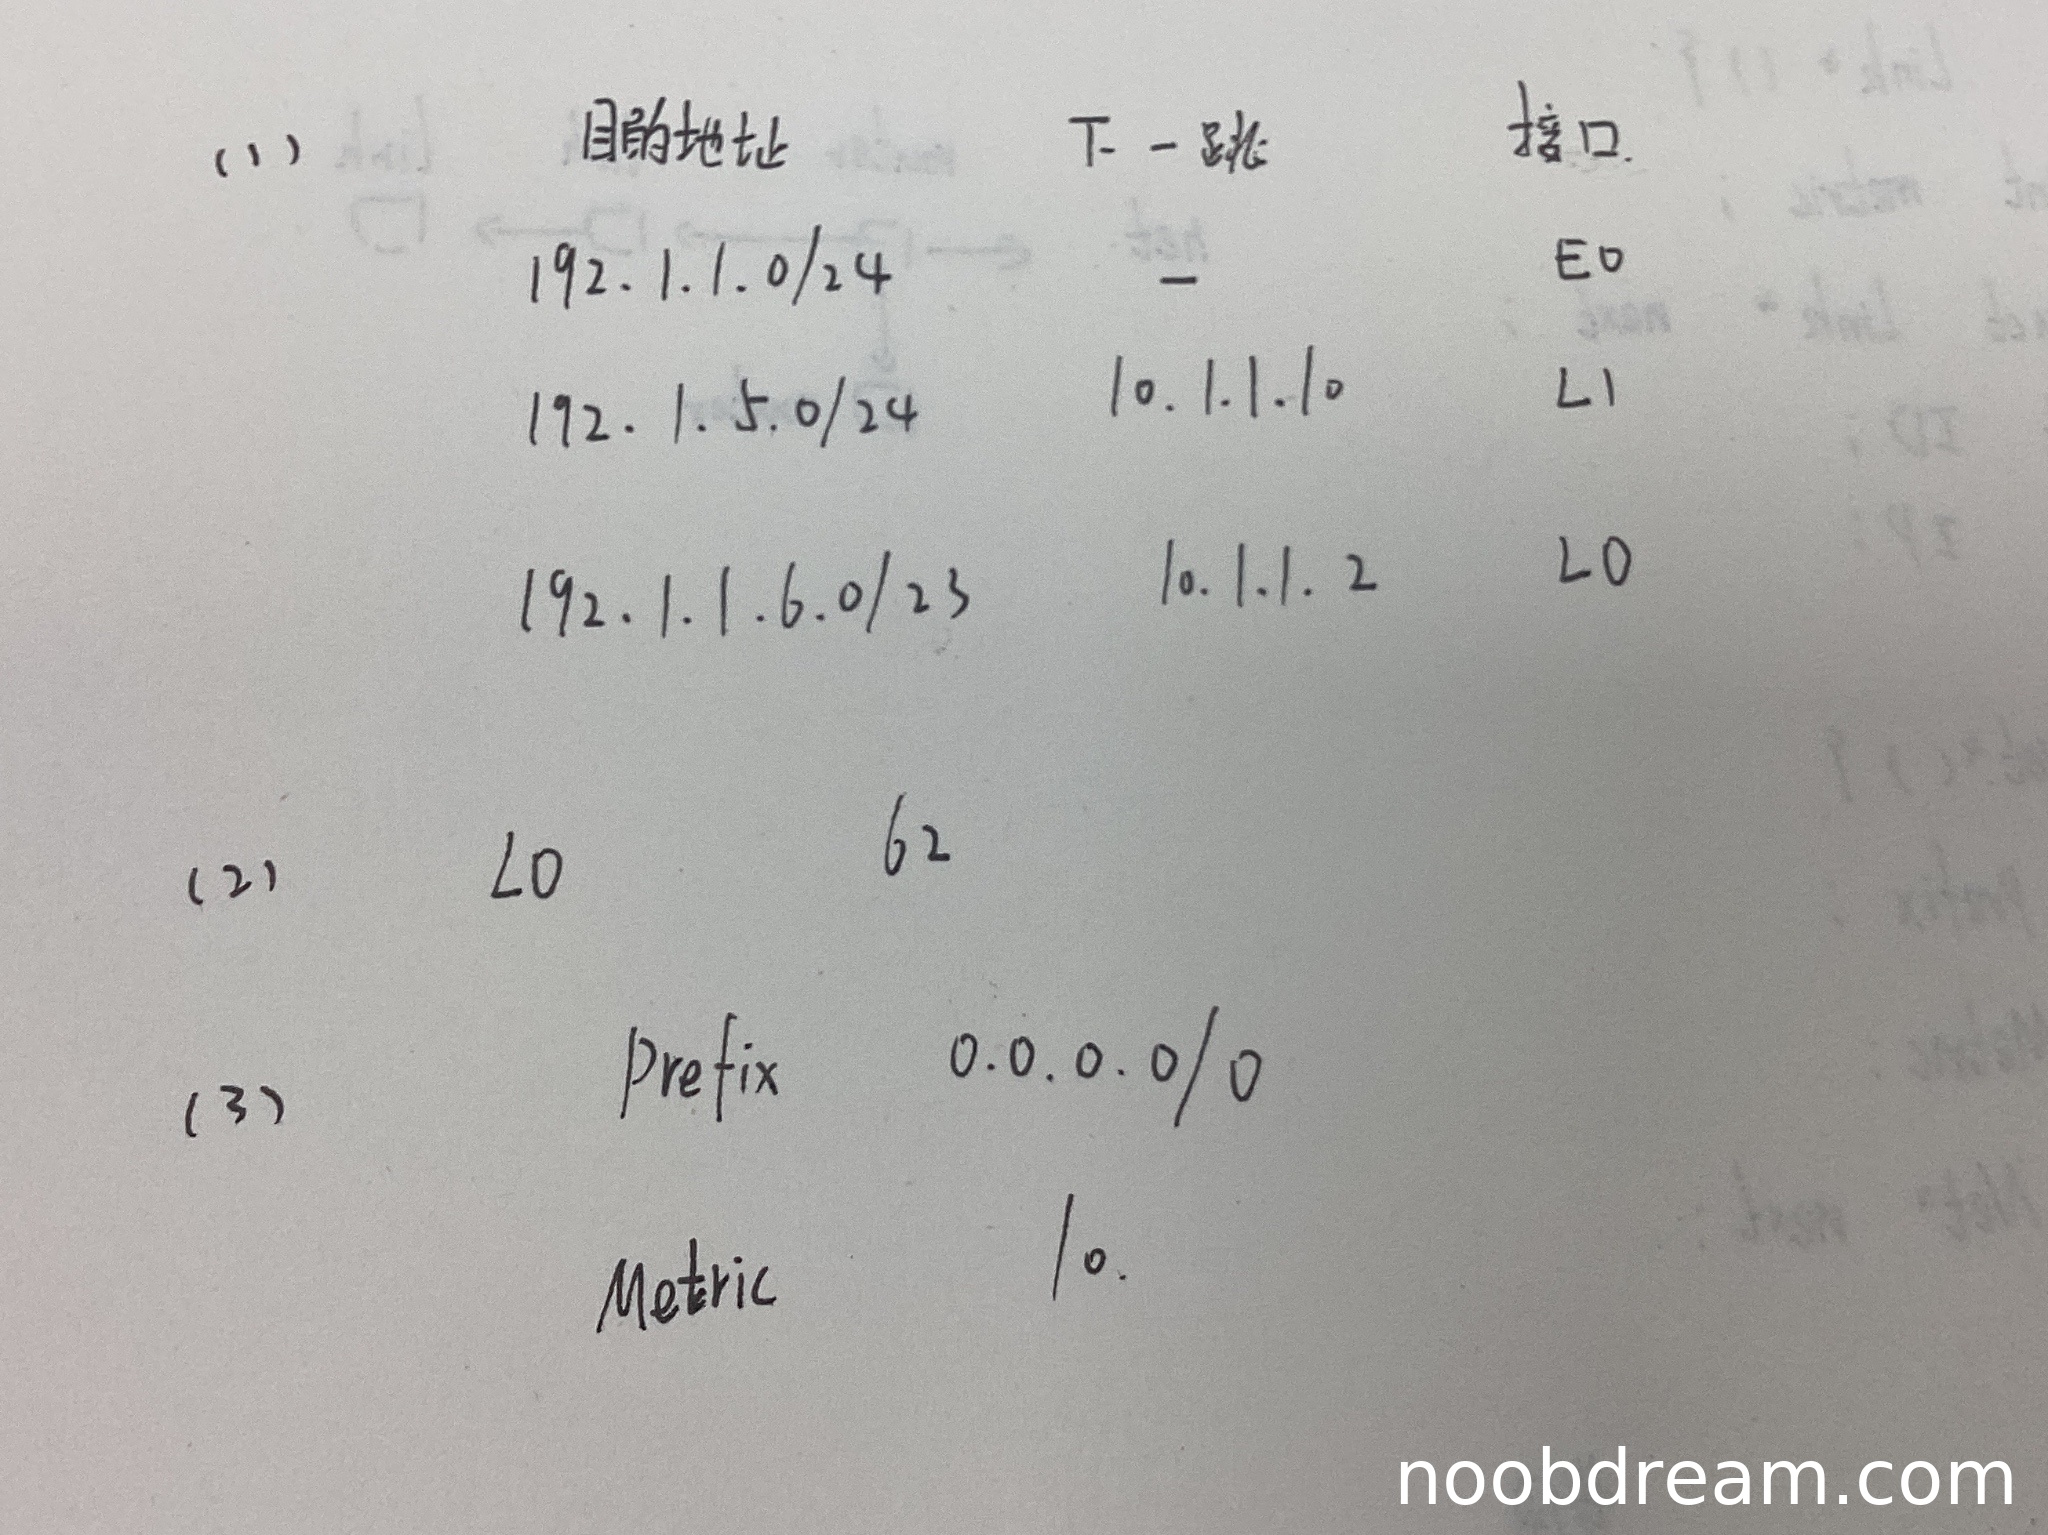 (1) 目的地址 下一跳 接口.
192.1.1.0/24 - E0
192.1.5.0/24 10.1.1.10 L1
192.1.1.6.0/23 10.1.1.2 L0
(2) L0 62
(3) Prefix 0.0.0.0/0
Metric 10.
noobdream.com